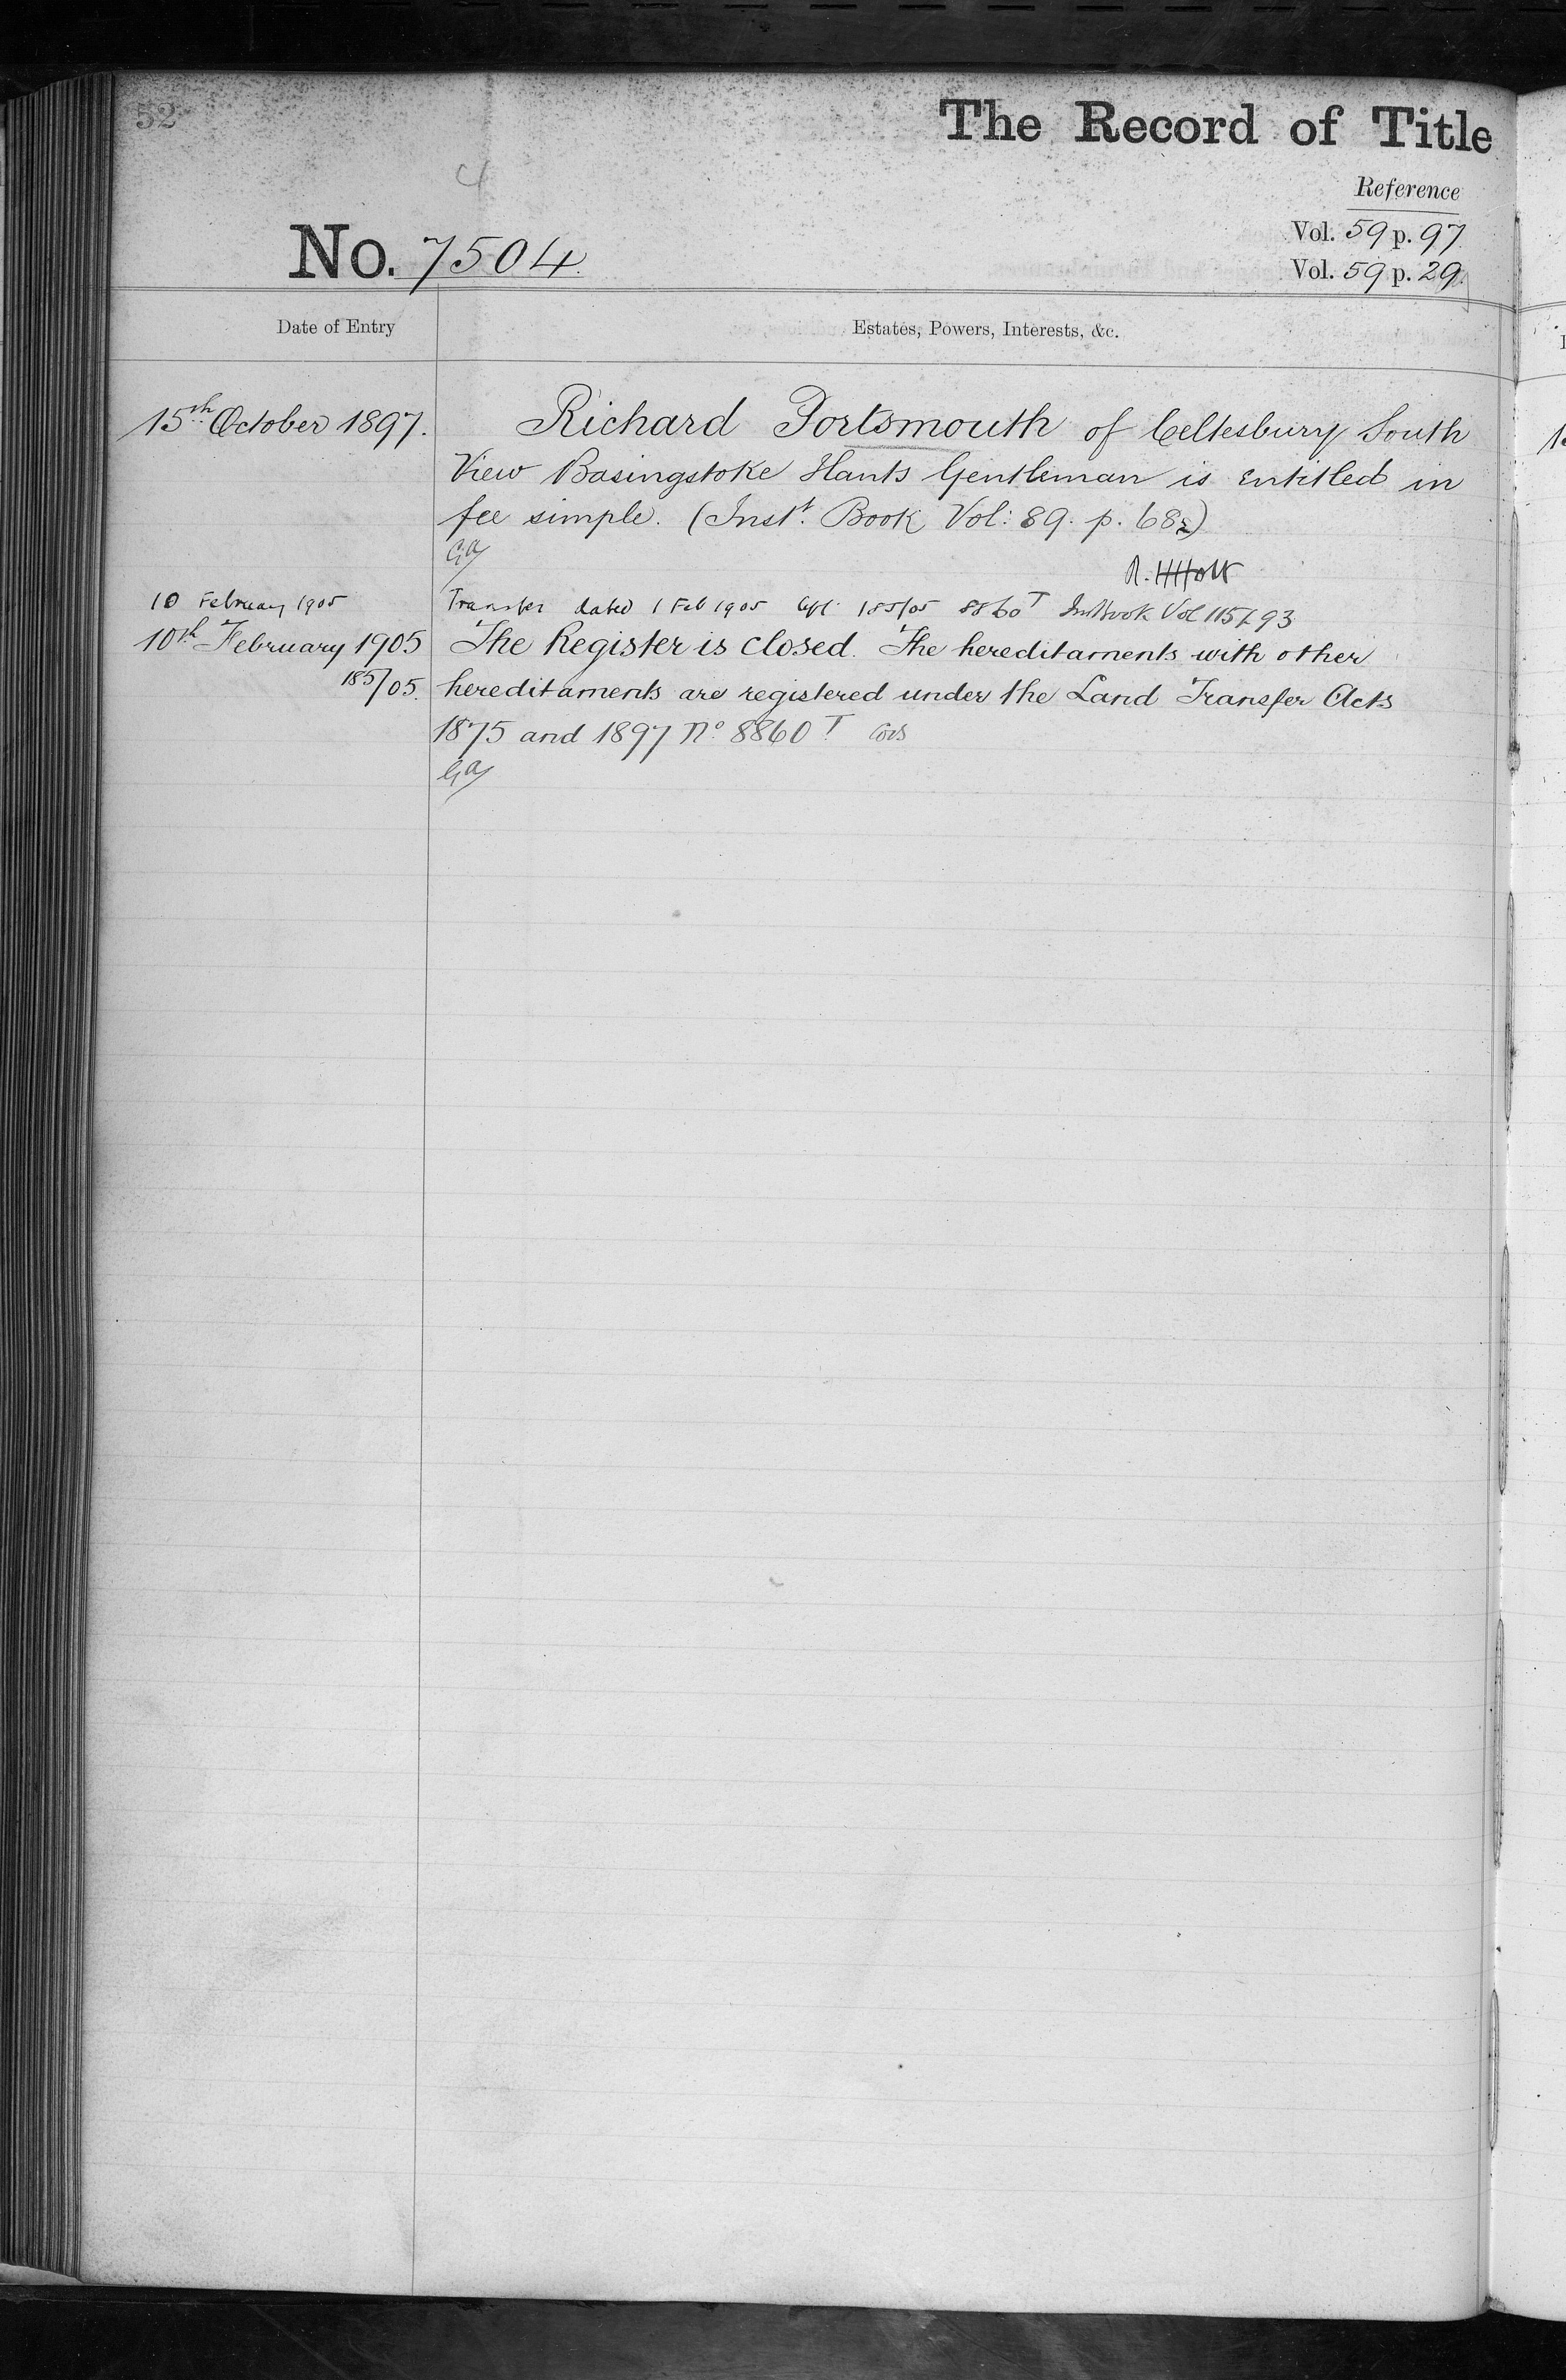 52
The Record of Title
Reference
Vol. 59 p. 97
Vol. 59 p. 29
No. 7504
Date of Entry
Estates, Powers, Interests, &c.
15th October 1897.
Richard Portsmouth of Celtesbury South
View Basingstoke Hants Gentleman is entitled in
fee simple. (Inst. Book Vol: 89. p. 68)
Ga
R. H Holt
10 February 1905
Transfer dated 1 Feb 1905 Appl 185/05 8860 T InstBook Vol 115 p 93
10th February 1905
185/05.
The Register is closed. The hereditaments with other
hereditaments are registered under the Land Transfer Acts
1875 and 1897 No 8860 T
Ga